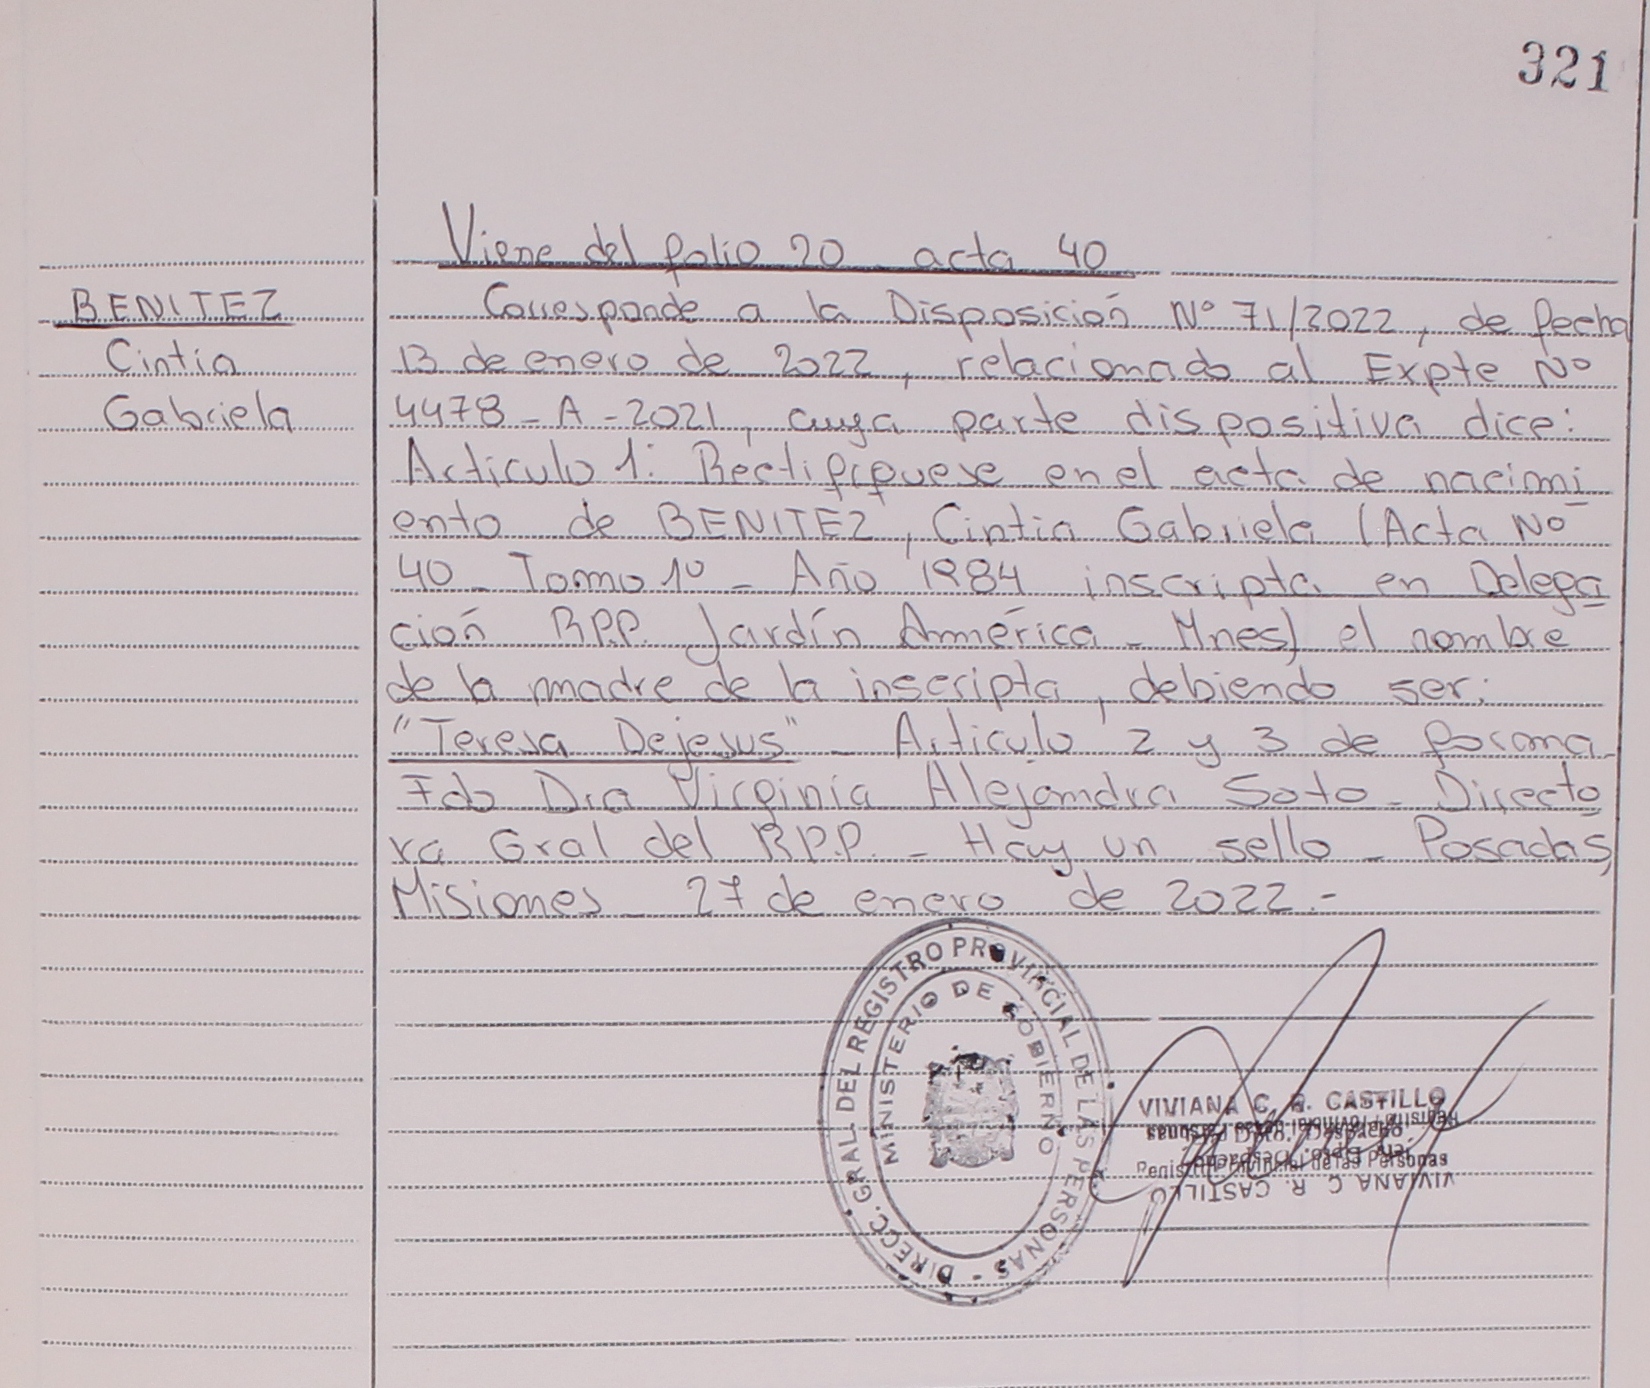 321
Viene del folio 20 acta 40
BENITEZ
Cintia
Gabriela
Corresponde a la Disposición Nº 71/2022, de fecha
13 de enero de 2022, relacionado al Expte Nº
4478-A-2021, cuya parte dispositiva dice:
Articulo 1: Rectifíquese en el acta de nacimi
ento de BENITEZ, Cintia Gabriela (Acta Nº
40 - Tomo 1º - Año 1984 inscripta en Delega
ción R.P.P. Jardín América - Mnes) el nombre
de la madre de la inscripta, debiendo ser:
"Teresa Dejesus" - Articulo 2 y 3 de forma -
Fdo Dra Virginia Alejandra Soto - Directo
ra Gral del R.P.P. - Hay un sello - Posadas,
Misiones - 27 de enero de 2022.-
DIRECC. GRAL. DEL REGISTRO PROVINCIAL DE LAS PERSONAS -
MINISTERIO DE GOBIERNO
VIVIANA C. R. CASTILLO
Dpto. Despacho
Registro Provincial de las Personas
VIVIANA C. R. CASTILLO